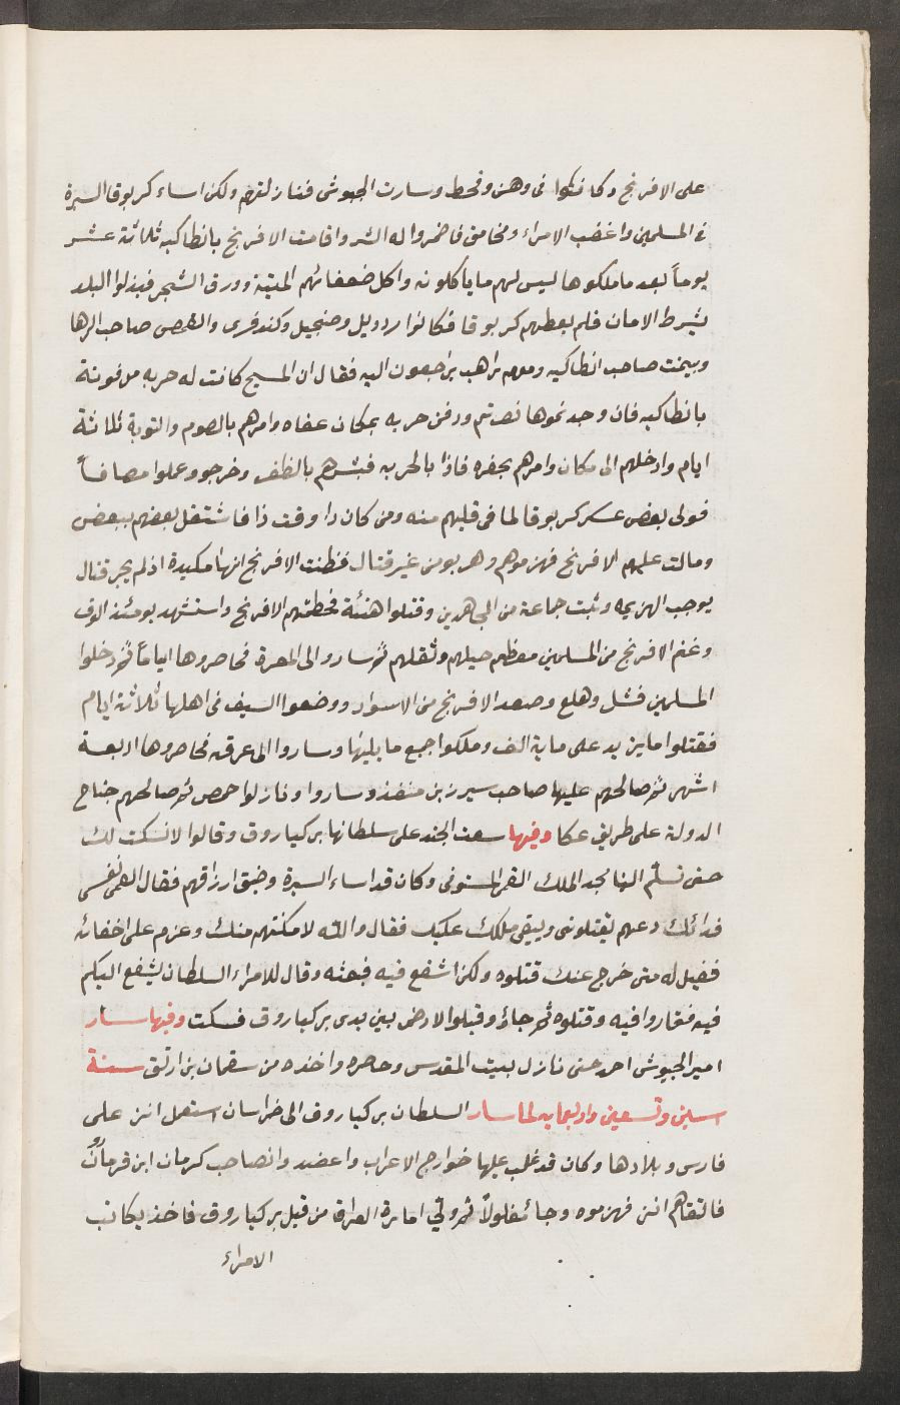 على الافرنج وكانوا فى وهن وقحط وسارت الجيوش فنازلتهم ولكن اساء كربوقا السيرة
فى المسلمين واغضب الامراء وتحامق فاضمروا له الشر واقامت الافرنج بانطاكيه ثلاثة عشر
يوماً بعد ما ملكوها ليس لهم ما ياكلونه واكل ضعفائهم الميتة وورق الشجر فبذلوا البلد
بشرط الامان فلم يعطهم كربوقا فكانوا بردويل وصنجيل وكندفرى والقمص صاحب الرها
وبيمنت صاحب انطاكيه ومعهم راهب يراجعون اليه فقال ان المسيح كانت له حربه مدفونة
بانطاكيه فان وجدتموها نصرتم ودفن حربه بمكان عفاه وامرهم بالصوم والتوبة ثلاثة
ايام وادخلهم الى مكان وامرهم بحفره فاذا بالحربه فبشرهم بالظفر وخرجو وعملوا مصافاً
فولى بعض عسكر كربوقا لما فى قلبهم منه ومن كان دا وقت ذا فاشتغل بعضهم ببعض
ومالت عليهم الافرنج فهزموهم وهربو من غير قتال فظنت الافرنج انها مكيدة اذ لم يجر قتال
يوجب الهزيمه وثبت جماعة من المجاهدين وقتلوا فحطمتهم الافرنج واستشهد يومئذ الوف
وغنم الافرنج من المسلمين معظم خيلهم وثقلهم ثم ساروا الى المعرة فحاصروها اياماً ثم دخلوا
المسلمين فشل وهلع وصعد الافرنج من الاسوار ووضعوا السيف فى اهلها ثلاثة ايام
فقتلوا ما يزيد على ماية الف وملكوا جميع ما يليها وساروا الى عرقه فحاصروها اربعة
اشهر ثم صالحهم عليها صاحب سيزر بن منقذ وساروا ونازلوا حمص ثم صالحهم جناح
الدولة على طريق عكا وفيها سعت الجند على سلطانها بركياروق وقالوا لا نسكت لك
حتى تسلم الينا مجد الملك القمى المستوفى وكان قد اساء السيرة وضيق ارزاقهم فقال القمى نفسى
فدائك دعهم يقتلونى ويبقى ملكك عليك فقال والله لا مكنتهم منك وعزم على اخفائه
فقيل له متى خرج عنك قتلوه ولكن اشفع فيه فبعثه وقال للامراء السلطان يشفع اليكم
فيه فغاروا فيه وقتلوه ثم جاؤ وقبلوا الارض بين يدى بركياروق فسكت وفيها سار
امير الجيوش احمد حتى نازل بيت المقدس وحاصره واخذه من سقمان بن ارتق سنة
اسلين وتسعين واربعمايه لما سار السلطان بركياروق الى خراسان استعمل انز على
فارس وبلادها وكان قد غلب عليها خوارج الاعراب واعضدوا نصاحب كرمان ابن قرمان
فالتقاهم انز فهزموه وجا مفلولاً ثم ولي امارة العراق من قبل بركياروق فاخذ يكاتب
الامراء